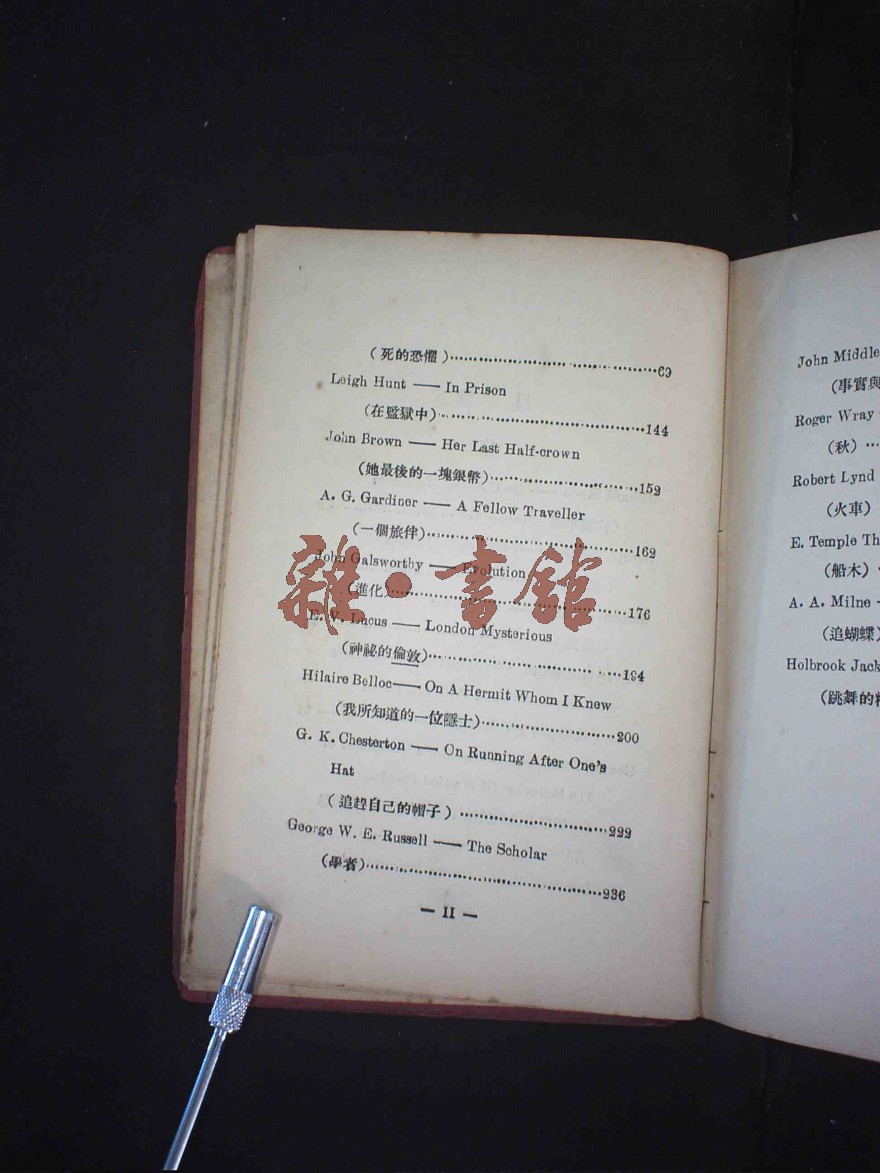 (死的恐懼)........................................69
Leigh Hunt —— In Prison
(在監獄中)........................................144
John Brown —— Her Last Half-crown
(她最後的一塊銀幣)........................................152
A. G. Gardiner —— A Fellow Traveller
(一個旅伴)........................................162
John Galsworthy —— Evolution
(進化)........................................176
E. V. Lucus —— London Mysterious
(神祕的倫敦)........................................194
Hilaire Belloc —— On A Hermit Whom I Knew
(我所知道的一位隱士)........................................200
G. K. Chesterton —— On Running After One's
Hat
(追趕自己的帽子)........................................222
George W. E. Russell —— The Scholar
(學者)........................................236
— II —
雜·書館
John Middle
(事實與
Roger Wray
(秋)...
Robert Lynd
(火車)
E. Temple Th
(船木)
A. A. Milne
(追蝴蝶)
Holbrook Jack
(跳舞的